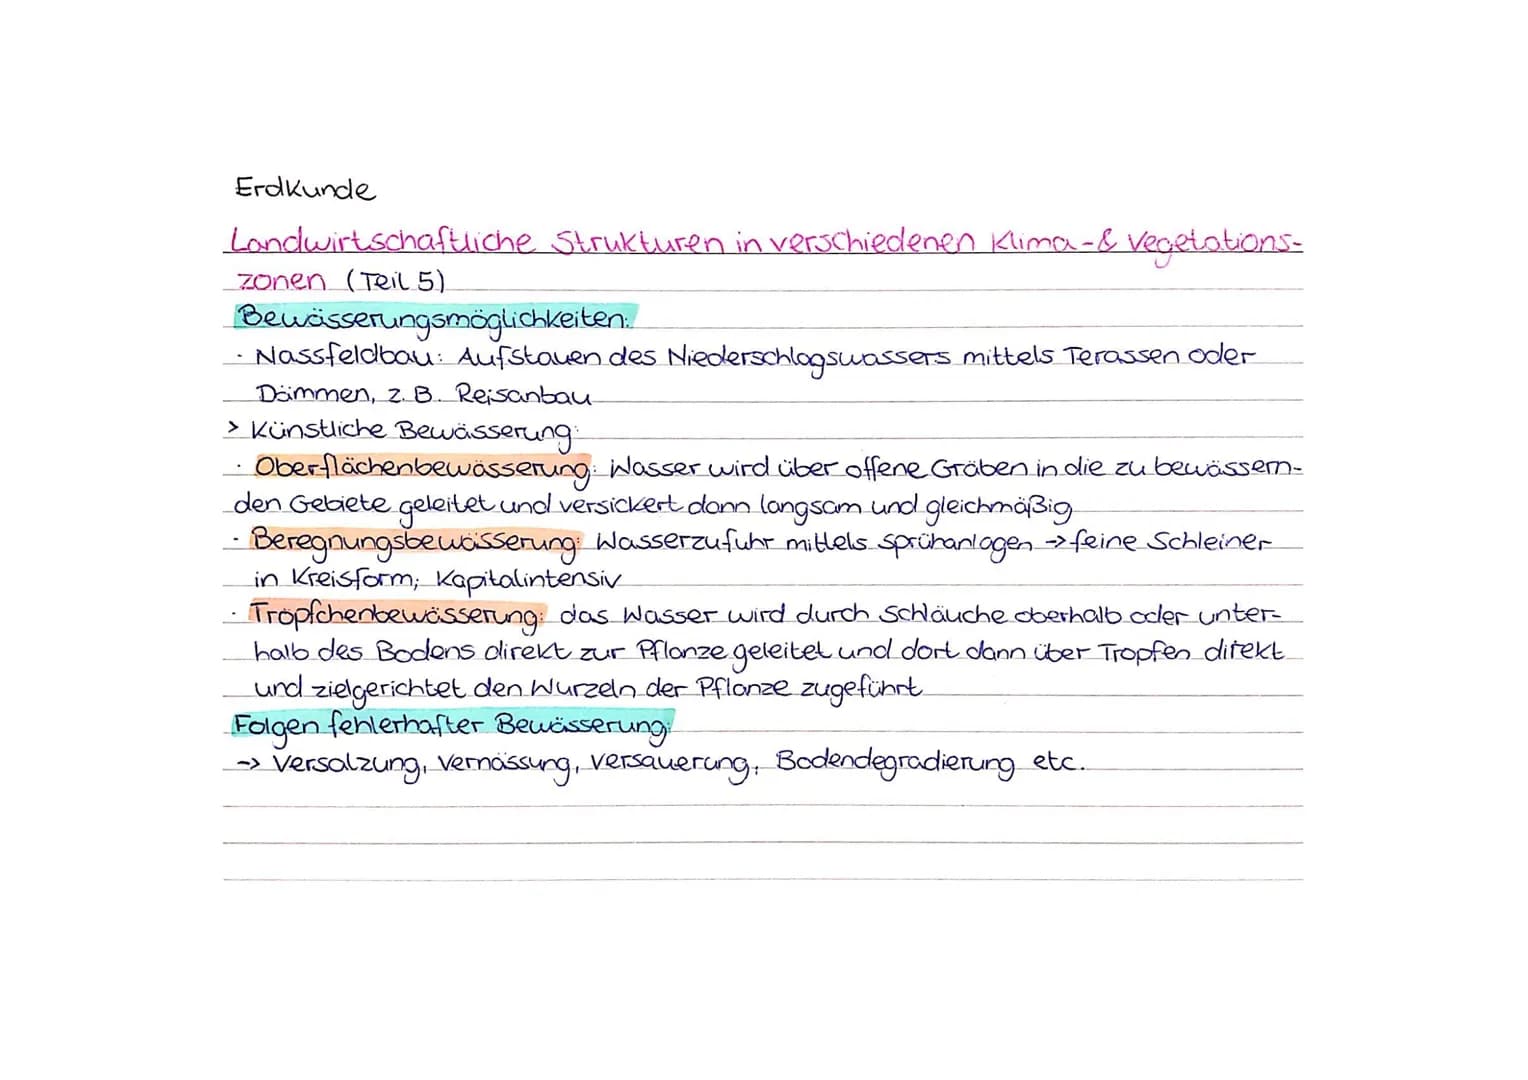 Erdkunde
Landwirtschaftliche Strukturen in verschiedenen Klima-& Vegetations-
zonen (Teil 5)
Bewässerungsmöglichkeiten:
· Nassfeldbau: Aufstauen des Niederschlagswassers mittels Terassen oder
Dämmen, z. B. Reisanbau
> Künstliche Bewässerung:
· Oberflächenbewässerung: Wasser wird über offene Gräben in die zu bewässern-
den Gebiete geleitet und versickert dann langsam und gleichmäßig
· Beregnungsbewässerung: Wasserzufuhr mittels Sprühanlagen → feine Schleiner
in Kreisform; Kapitalintensiv
· Tröpfchenbewässerung: das Wasser wird durch Schläuche oberhalb oder unter-
halb des Bodens direkt zur Pflanze geleitet und dort dann über Tropfen direkt
und zielgerichtet den Wurzeln der Pflanze zugeführt
Folgen fehlerhafter Bewässerung:
-> Versalzung, Vernässung, Versauerung, Bodendegradierung etc.